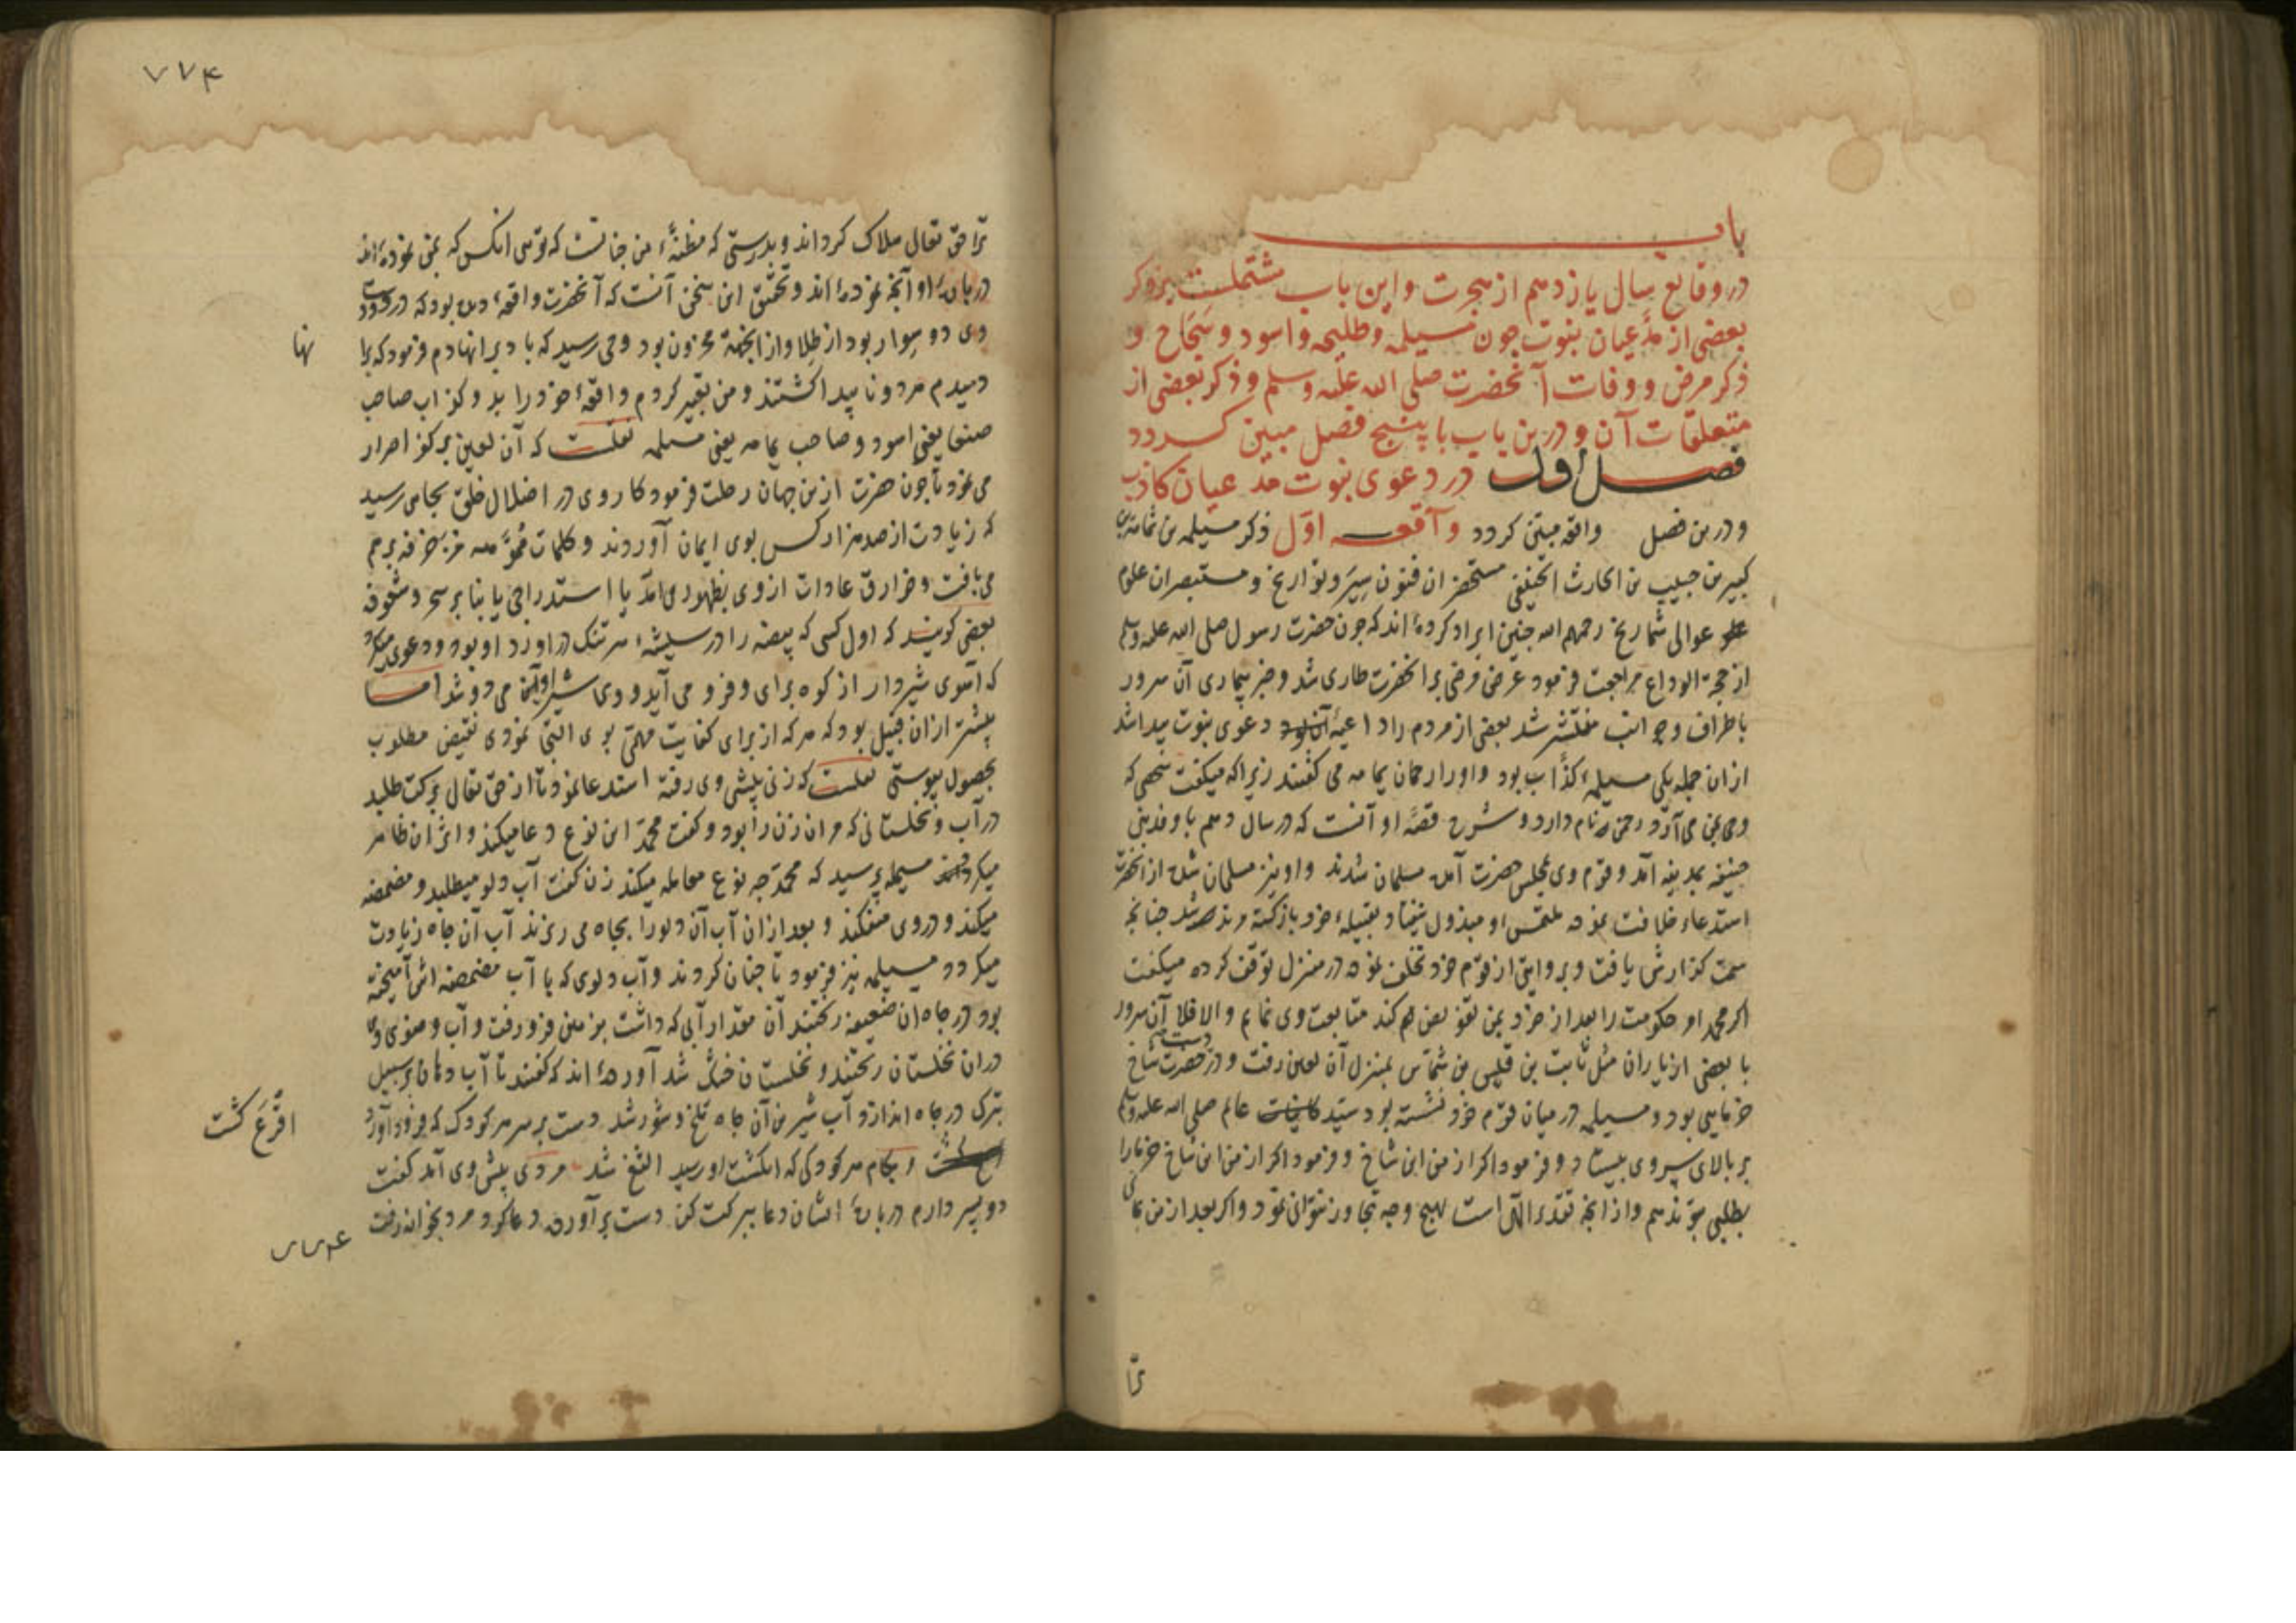 باب
در وقایع سال یازدهم از هجرت و این باب مشتملست بر ذکر
بعضی از مدّعیان نبوت چون مسیلمه و طلیحه و اسود و سَجَاح و
ذکر مرض و وفات آنحضرت صلی الله علیه وسلم و ذکر بعضی از
متعلقات آن و درین باب با پنج فصل مبین کردد
فصل اول در دعوی نبوت مدعیان کاذب
و درین فصل واقعه مبیّن کردد واقعه اوّل ذکر مسیلمه بن ثمامة بن
کبیر بن حبیب بن الحارث الحنیفی مستحضران فنون سِیَر و تواریخ و مستبصران علوم
عوالی شماریخ رحمهم الله چنین ایراد کرده‌اند که چون حضرت رسول صلی الله علیه وسلم
از حجة الوداع مراجعت فرمود عرض مرضی بر انحضرت طاری شد و خبر بیماری آن سرور
باطراف و جوانب منتشر شد بعضی از مردم را داعیهٔ دعوی نبوت پیدا شد
از ان جمله یکی مسیلمهٔ کذّاب بود و او را رحمان یمامه می کفتند زیرا که میکفت شخصی که
وحی بمن می آرد رحمن نام دارد و شرح قصّه او آنست که در سال دهم با وفد بنی
حنیفه بمدینه آمد و قوم وی بمجلس حضرت آمده مسلمان شدند و او نیز مسلمان شده از انحضرت
استدعاء خلافت نمود ملتمس او مبذول نیفتاد بقبیلهٔ خود بازکشته مرتد شد چنانچه
سمت کزارش یافت و بروایتی از قوم خود تخلف نموده در منزل توقف کرده میکفت
اکر محمد امر حکومت را بعد از خود بمن تفویض کند متابعت وی نمایم و الا فلا آن سرور
با بعضی از یاران مثل ثابت بن قیس بن شمّاس بمنزل آن لعین رفت و در دست حضرت شاخ
خرمایی بود و مسیلمه در میان قوم خود نشسته بود سیّد عالم صلی الله علیه وسلم
بر بالای سر وی بیستاد و فرمود اکر از من این شاخ و فرمود اکر از من این شاخ خرما را
بطلبی بتو ندهم و از آنچه تقدیر الهی است بهیچ وجه تجاوز نتوانی نمود و اکر بعد از من بمانی
ترا
۷۷۴
ترا حق تعالی هلاک کرداند و بدرستی که مظنّهٔ من چنانست که تو همی انکس که بمن نموده‌اند
در باب او آنچه نموده‌اند و تحقیق این سخن آنست که آنحضرت واقعهٔ دیده بود که در دست
وی دو سوار بود از طلا و از انجهة محزون بود وحی رسید که باد بر انها دم فرمود که بر
انها
دمیدم هر دو ناپیدا کشتند و من تعبیر کردم واقعهٔ خود را بدو کذاب صاحب
صنعا یعنی اسود و صاحب یمامه یعنی مسیلمه نقلست که آن لعین بر کفر اصرار
می نمود تا چون حضرت ازین جهان رحلت فرمود کار وی در اضلال خلق بجایی رسید
که زیادت از صد هزار کس بوی ایمان آوردند و کلمات مموّهه مزخرفه بر هم
می بافت و خوارق عادات از وی بظهور می آمد یا استدراجی یا بنا بر سحر و شعوذه
بعضی کویند که اول کسی که بیضه را در شیشهٔ سر تنک در اورد او بود و دعوی میکرد
که آهوی شیردار از کوه برای وی فرو می آید و وی شیر او می دوشد اما
بیشتر ازان قبیل بود که هر که از برای کفایت مهمّی بوی التجا نمودی نقیض مطلوب
بحصول پیوستی نقلست که زنی پیش وی رفته استدعا نمود تا از حق تعالی برکت طلبد
در آب و نخلستانی که مر ان زن را بود و کفت محمّد این نوع دعا میکند و اثر ان ظاهر
میکردد مسیلمه پرسید که محمّد چه نوع معامله میکند زن کفت آب دلو میطلبد و مضمضه
میکند و در وی میفکند و بعد ازان آب آن دلو را بچاه می ریزند آب آن چاه زیادت
میکردد مسیلمه نیز فرمود تا چنان کردند و آب دلوی که با آب مضمضه اش آمیخته
بود در چاه ان ضعیفه ریختند آن مقدار آبی که داشت بزمین فرو رفت و آب وضوی وی
در ان نخلستان ریختند و نخلستان خشک شد آورده‌اند که کفتند تا آب دهان بر سبیل
تبرک در چاه اندازد و آب شیرین آن چاه تلخ و شور شد دست بر سر هر کودک که فرود آورد
اقرع کشت
و بکام هر کودکی که انکشت او رسید الثغ شد مردی پیش وی آمد کفت
دو پسر دارم در باب ایشان دعا ببرکت کن دست برآورده دعا کرد مرد بخانه رفت